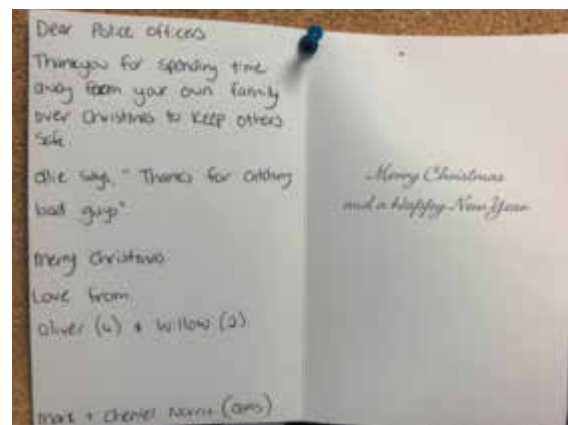 Dear Police officers
Thankyou for spending time
away from your own family
over Christmas to keep others
safe.
Ollie says, "Thanks for catching
bad guys"
merry Christmas
Love from
Oliver (4) + Willow (2)
+
Merry Christmas
and a Happy New Year